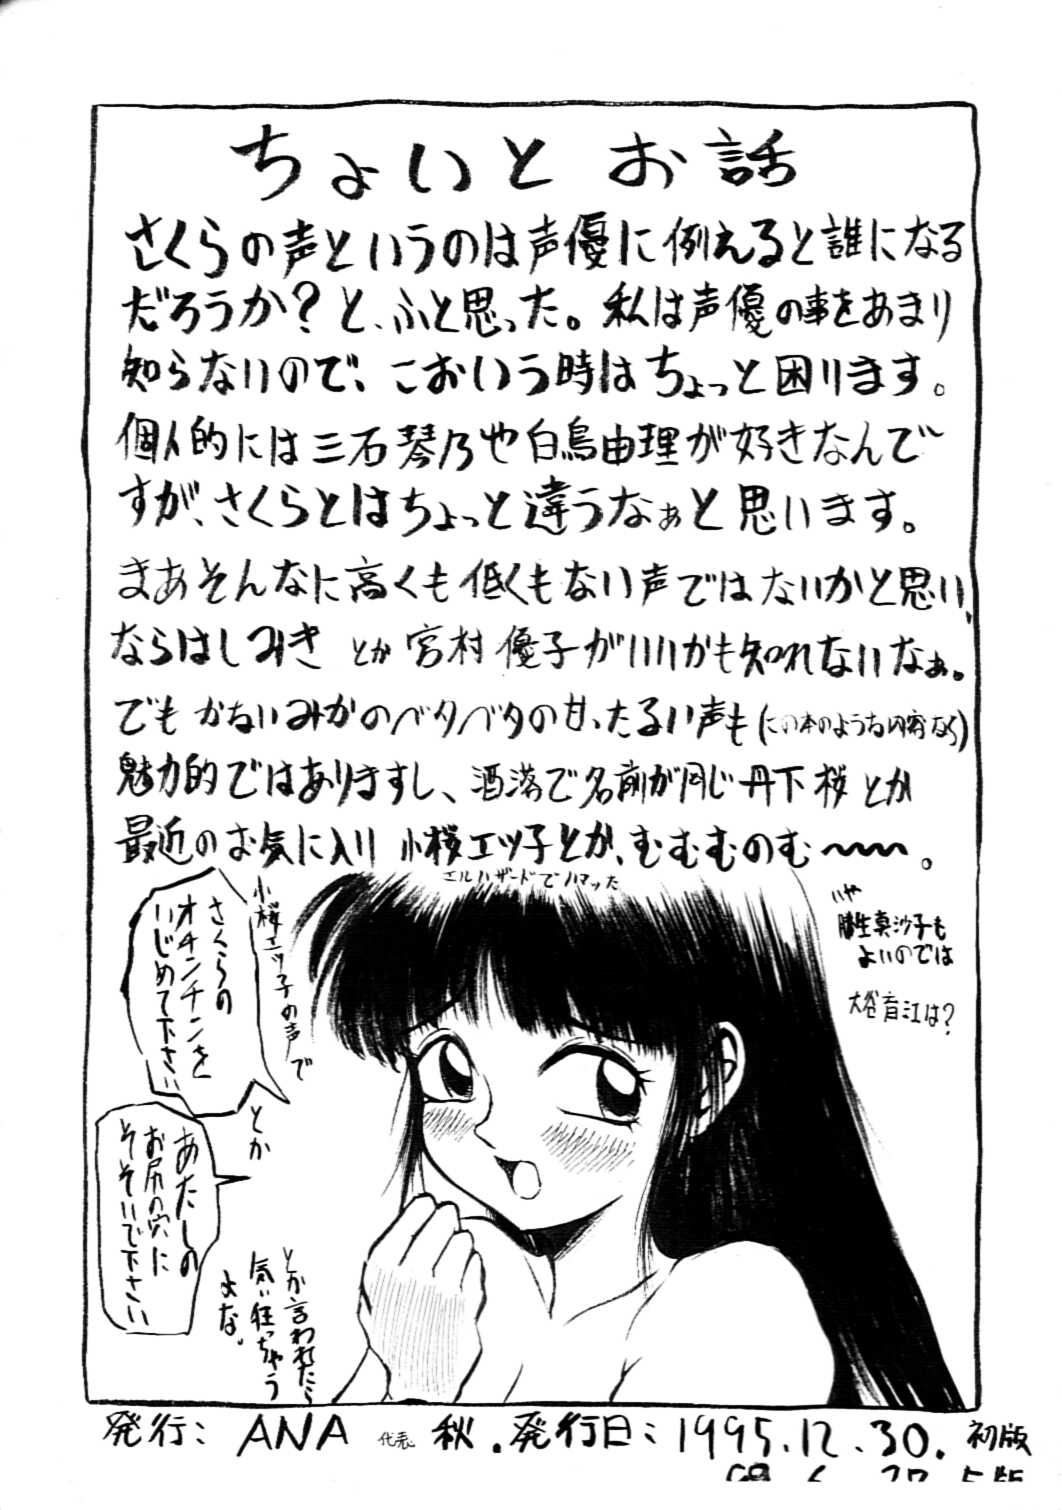 ちょいとお話
さくらの声というのは声優に例えると誰になる
だろうか?と、ふと思った。私は声優の事をあまり
知らないので、こおいう時はちょっと困ります。
個人的には三石琴乃や白鳥由理が好きなんで
すが、さくらとはちょっと違うなぁと思います。
まあそんなに高くも低くもない声ではないかと思い、
ならはしみきとか宮村優子がいいかも知れないなぁ。
でもかないみかのベタベタの甘ったるい声も(この本のような内容なら)
魅力的ではありますし、洒落で名前が同じ丹下桜とか
最近のお気に入り小桜エツ子とか、むむむのむ〜〜〜。
エルハザードでハマった
いや
勝生真沙子も
よいのでは
大谷育江は?
小桜エツ子の声で
さくらの
オチンチンを
いじめて下さい
とか
あたしの
お尻の穴に
そそいで下さい
とか言われたら
気い狂っちゃう
よな。
発行:ANA 代表 秋.発行日:1995.12.30.初版